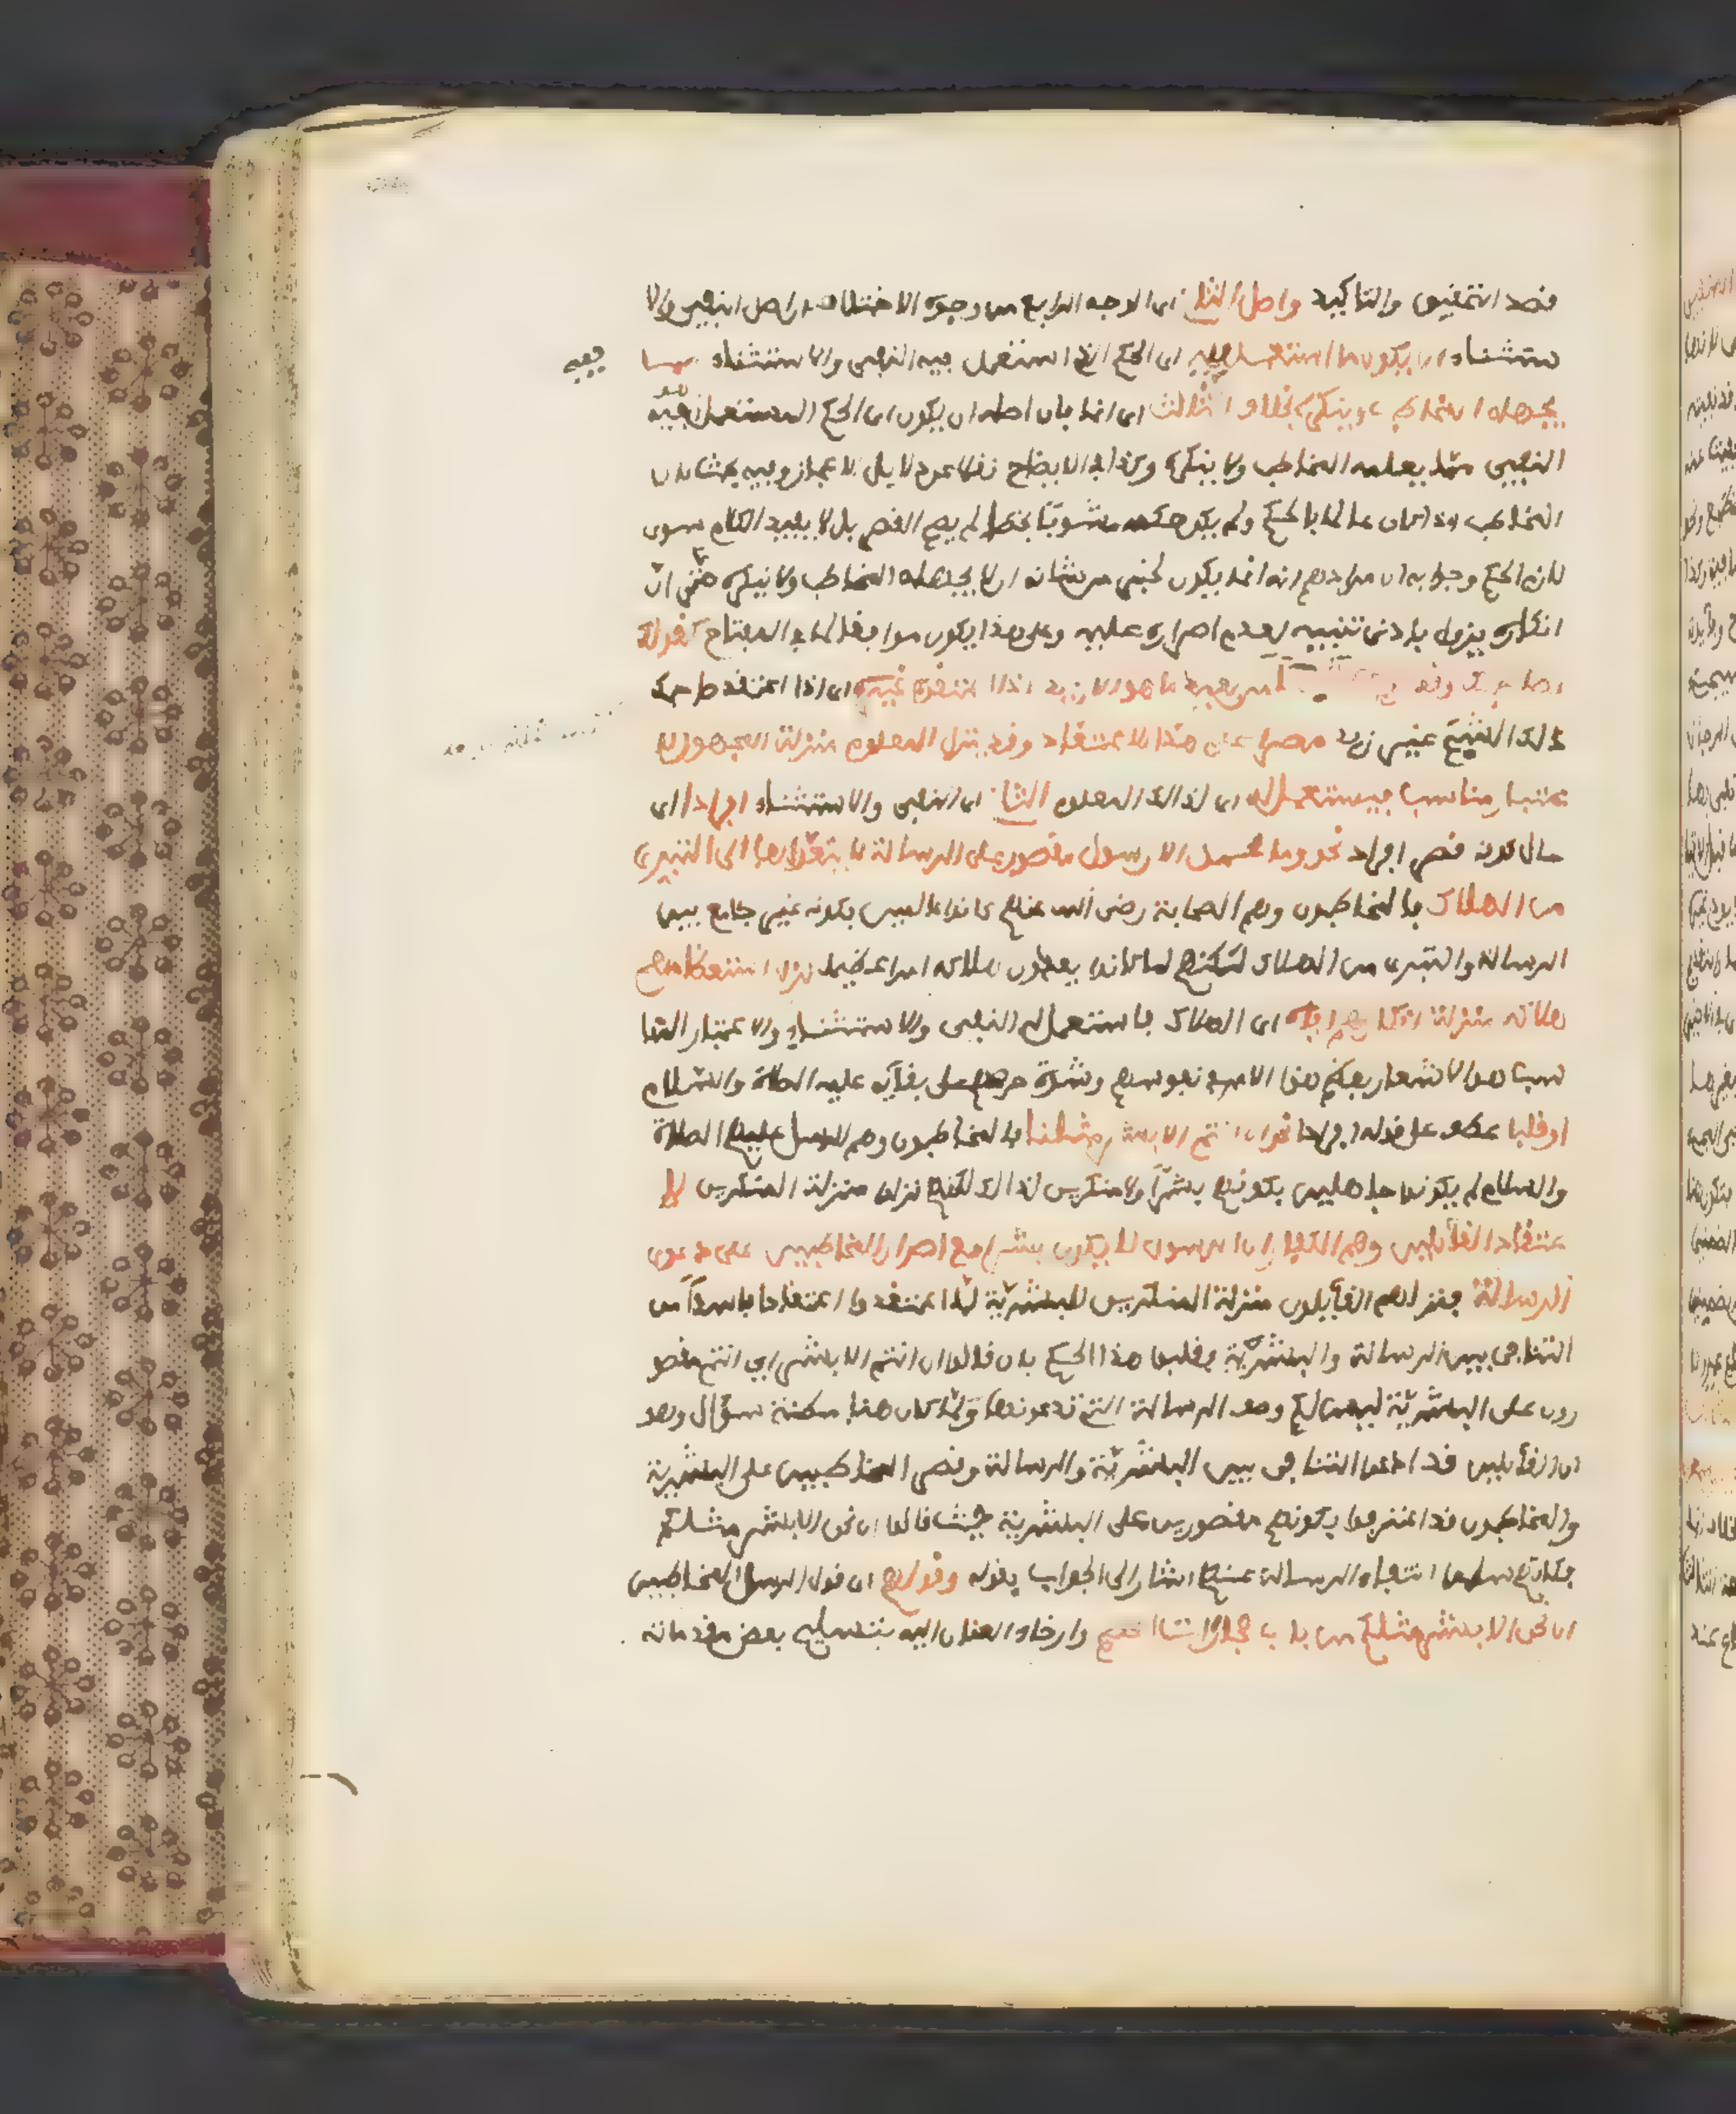 قصد التحقيق والتاكيد واصل الثاني اى الوجه الرابع من وجوه الاختلاف ان اصل النفى والا
ستثناء ان يكون ما استعمل فيه اى الحكم الذي استعمل فيه النفى والاستثناء مما
يجهله المخاطب وينكره بخلاف الثالث اى انما بان اصله ان يكون اى الحكم المستعمل هو فيه
النفى مما يعلمه المخاطب ولا ينكره وكذا في الايضاح نقلا عن دلايل الاعجاز وفيه بحث لان
المخاطب اذا كان عالما بالحكم ولم يكن حكمه مشوبا بخطا لم يصح القصر بل لا يفيد الكلام سوى
لازم الحكم وجوابه ان مرادهم انه انما يكون لخبر من شانه ان لا يجهله المخاطب ولا ينكره حتى ان
انكاره يزول بادنى تنبيه لعدم اصراره عليه وعلى هذا يكون موافقا لما في المفتاح كقولك
لصاحبك وقد ما هو الا زيد اذا اعتقده غيره اى اذا اعتقد صاحبك
ذالك الشبح غير زيد مصرا على هذا الاعتقاد وقد ينزل المعلوم منزلة المجهول لا
عتبار مناسب فيستعمل له اى لذالك المعلوم الثاني اى النفى والاستثناء افرادا اى
حال كونه قصر افراد نحو وما محمد الا رسول مقصور على الرسالة لا يتعداها الى التبرى
من الهلاك فالمخاطبون وهم الصحابة رضى الله عنهم كانوا عالمين بكونه غير جامع بين
الرسالة والتبرى من الهلاك لكنهم لما كانوا يعدون هلاكه امرا عظيما نزل استعظامهم
هلاكه منزلة انكارهم اياه اى الهلاك فاستعمل له النفى والاستثناء والاعتبار المنا
سب هو الاشعار بعظم هذا الامر فى نفوسهم وشدة حرصهم على بقائه عليه الصلاة والسلام
او قلبا عطف على قوله افرادا نحو ان انتم الا بشر مثلنا فالمخاطبون وهم الرسل عليهم الصلاة
والسلام لم يكونوا جاهلين بكونهم بشرا ولا منكرين لذالك لكنهم نزلوا منزلة المنكرين لا
عتقاد القائلين وهم الكفار ان الرسول لا يكون بشرا مع اصرار المخاطبين على دعوى
الرسالة فنزلهم القائلون منزلة المنكرين للبشرية لما اعتقدوا اعتقادا فاسدا من
التنافى بين الرسالة والبشرية فقلبوا هذا الحكم بان قالوا ان انتم الا بشر اى انتم مقصو
رون على البشرية ليس لكم وصف الرسالة التي تدعونها ولما كان هنا مظنة سؤال وهو
ان القائلين قد ادعوا التنافى بين البشرية والرسالة وقصر المخاطبين على البشرية
والمخاطبون قد اعترفوا بكونهم مقصورين على البشرية حيث قالوا ان نحن الا بشر مثلكم
فكانهم سلموا انتفاء الرسالة عنهم اشار الى الجواب بقوله وقولهم اى قول الرسل المخاطبين
ان نحن الا بشر مثلكم من باب مجاراة الخصم وارخاء العنان اليه بتسليم بعض مقدماته